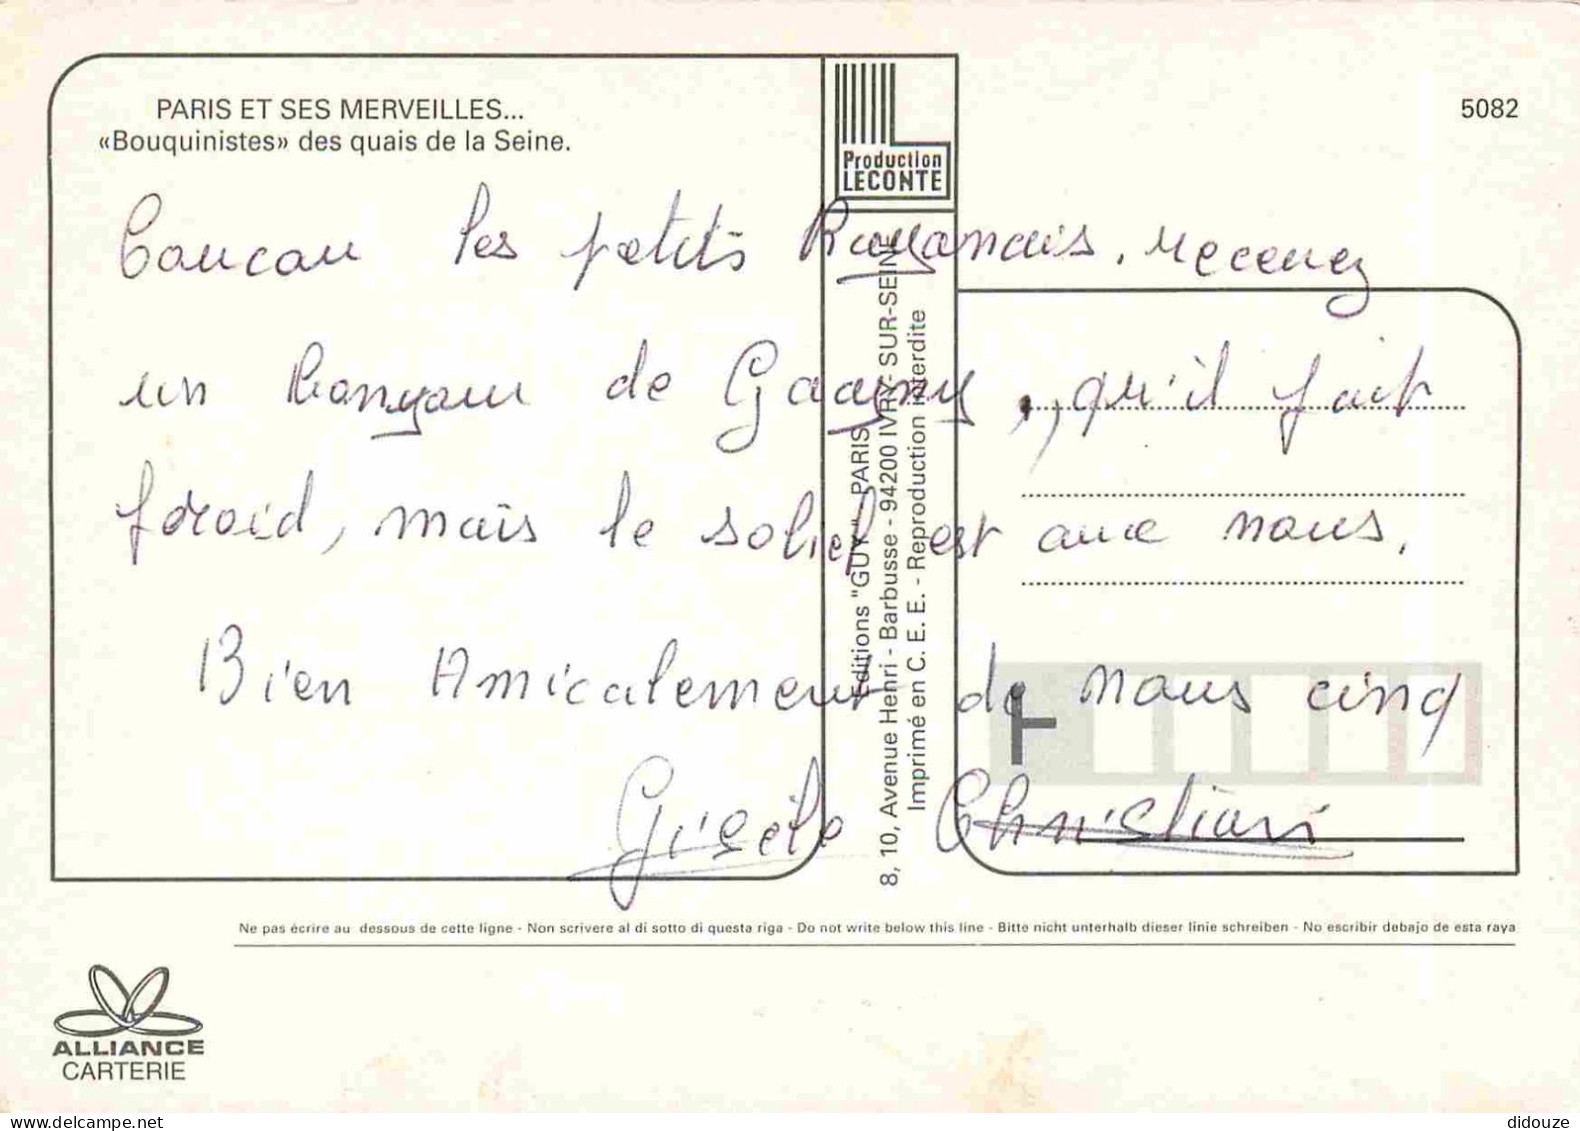 PARIS ET SES MERVEILLES...
«Bouquinistes» des quais de la Seine.
5082
Production
LECONTE
Coucou les petits Royannais. recevez
un bonjour de Gagny, qu'il fait
froid, mais le soleil est avec nous.
Bien Amicalement de nous cinq
Gisèle Christian
Editions "GUY" - PARIS
8, 10, Avenue Henri - Barbusse - 94200 IVRY- SUR-SEINE
Imprimé en C. E. E. - Reproduction interdite
Ne pas écrire au dessous de cette ligne - Non scrivere al di sotto di questa riga - Do not write below this line - Bitte nicht unterhalb dieser linie schreiben - No escribir debajo de esta raya
ALLIANCE
CARTERIE
www.delcampe.net
didouze